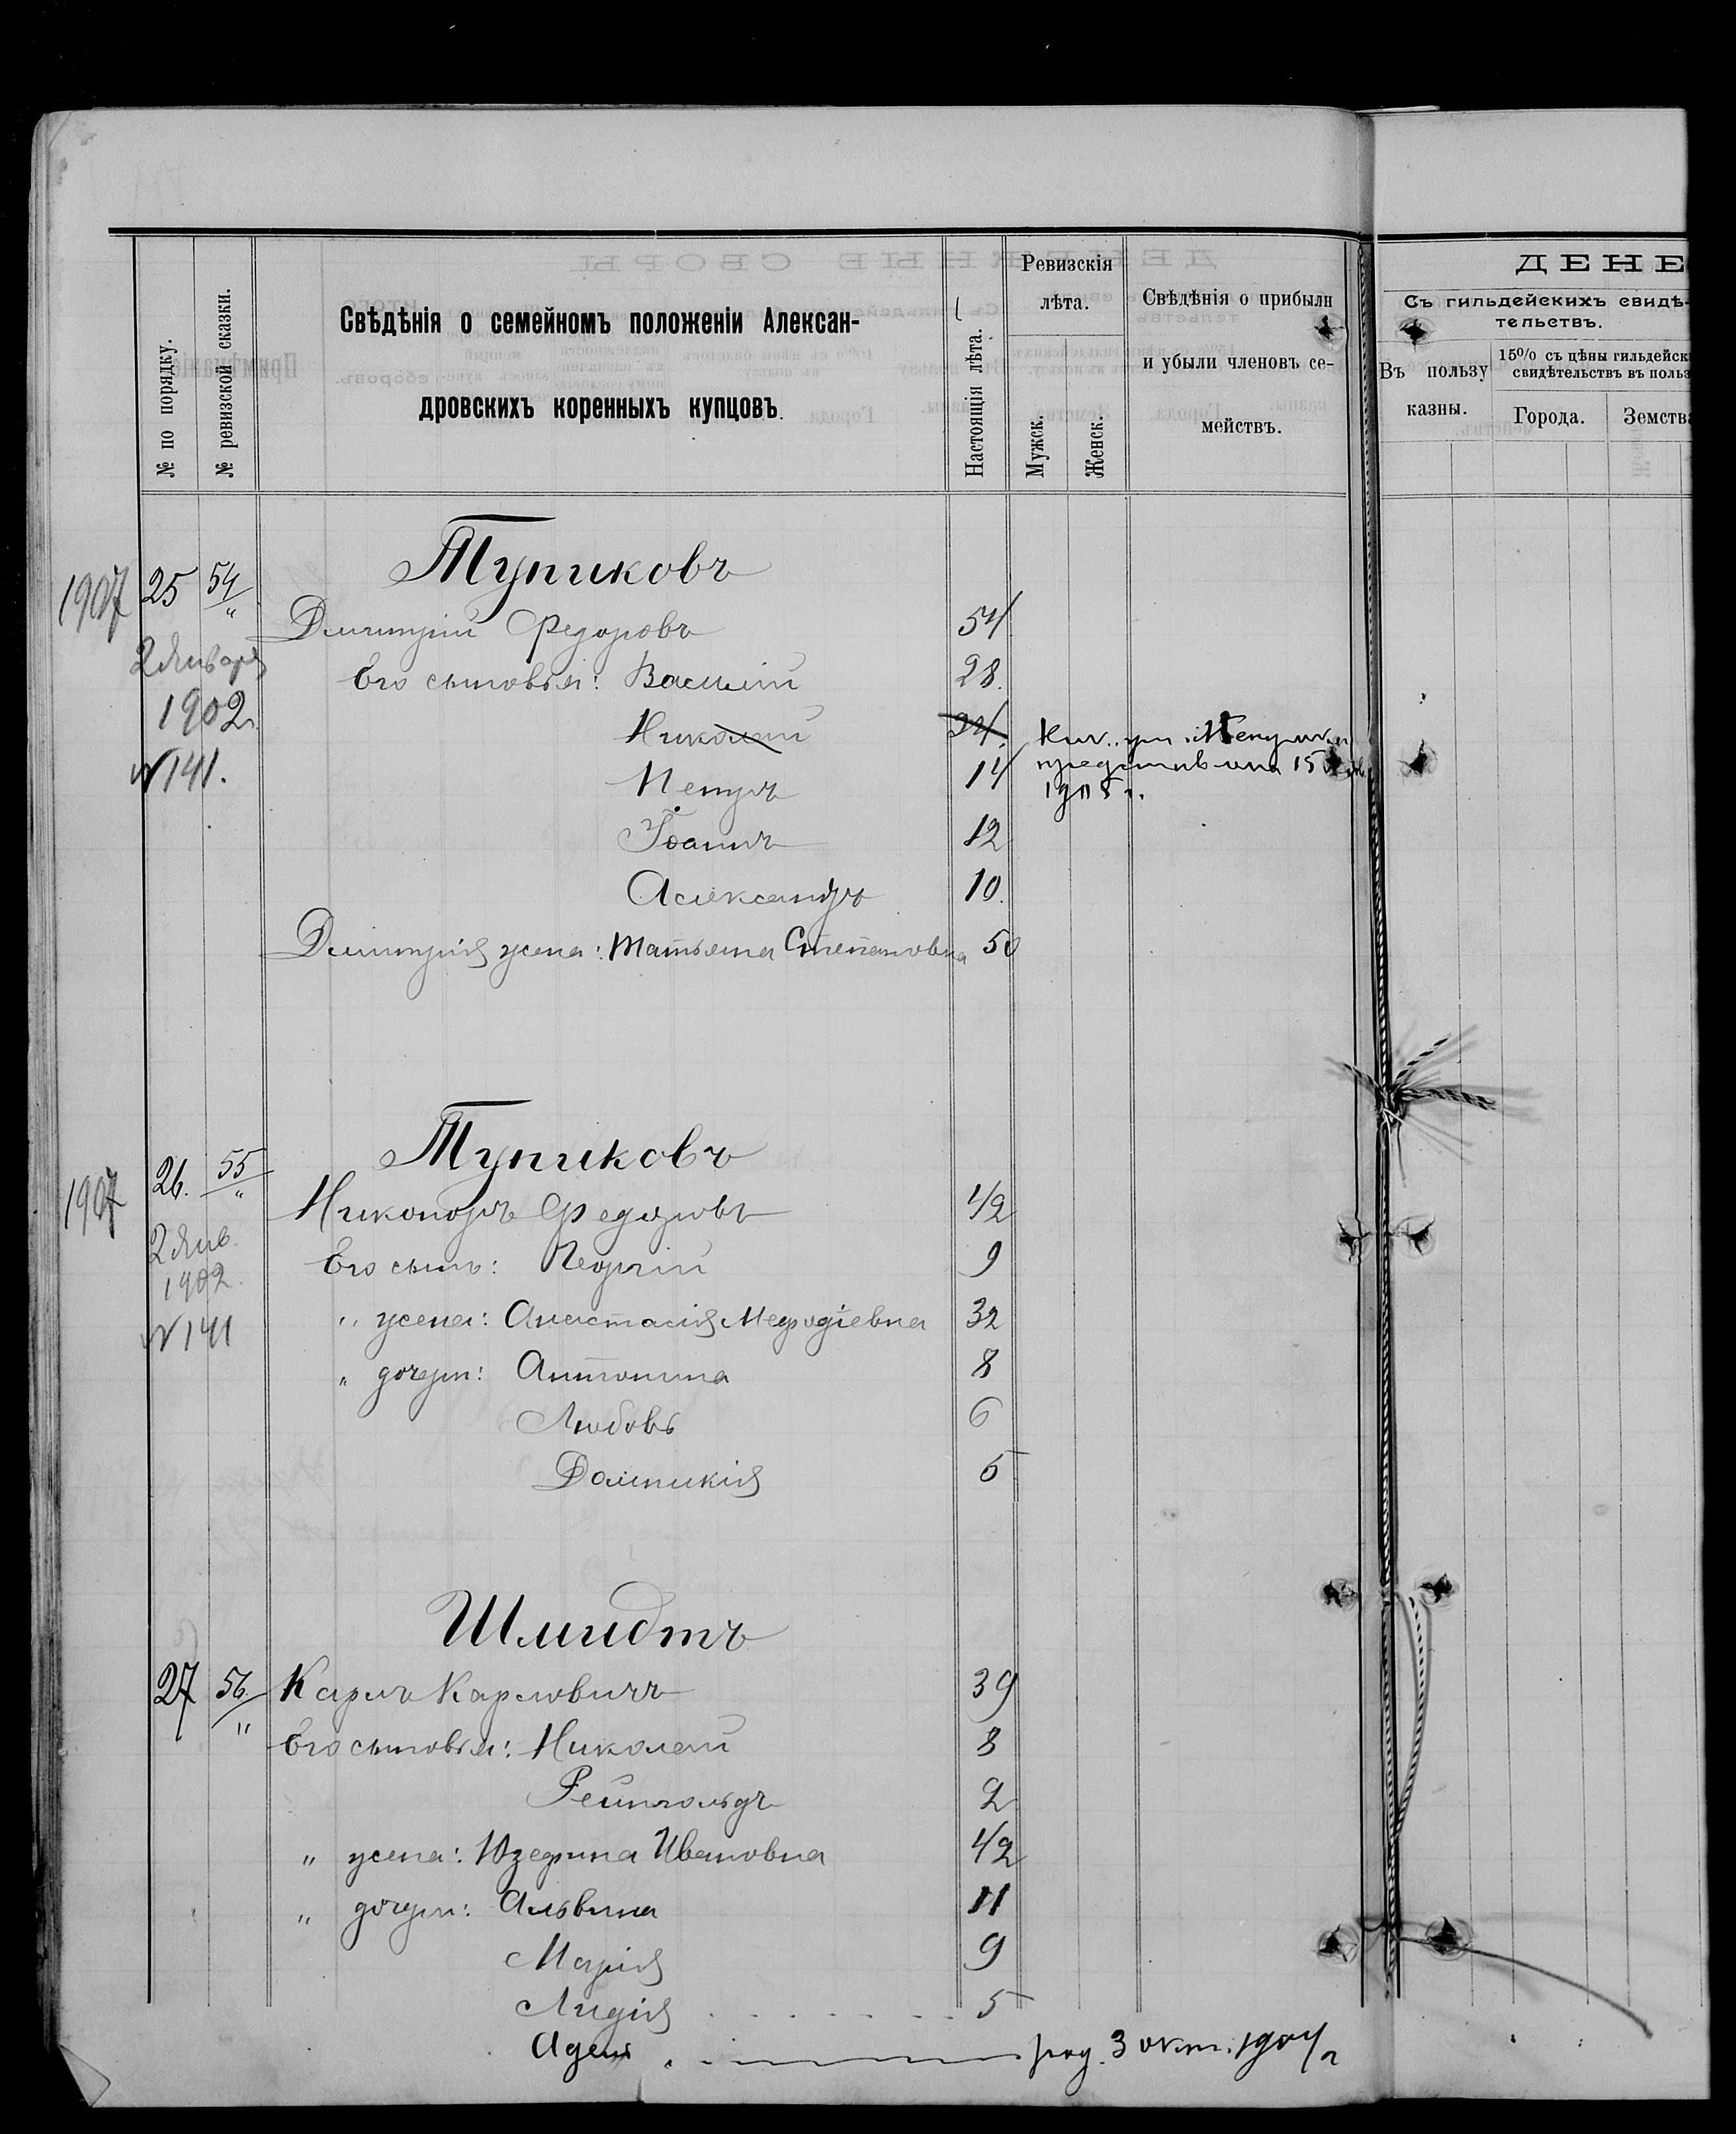 № по порядку.
№ ревизской сказки.
Свѣдѣнія о семейномъ положеніи Алексан-
дровскихъ коренныхъ купцовъ.
Настоящія лѣта.
Ревизскія
лѣта.
Мужск.
Женск.
Свѣдѣнія о прибыли
и убыли членовъ се-
мействъ.
ДЕНЕ
Съ гильдейскихъ свидѣ-
тельствъ.
Въ пользу
казны.
15% съ цѣны гильдейск
свидѣтельствъ въ польз
Города.
Земства
Тупиковъ
1907 25 54/"
Димитрій Федоровъ 54
2 Января
Его сыновья: Василій 28.
1902
Николай 24.
№ 141.
Петръ 14
1905 г.
Іоаннъ 12
Александръ 10.
Димитрія жена: Татьяна Степановна 50
Тупиковъ
1907 26. 55/"
Никаноръ Федоровъ 42
2 Янв.
1902.
Его сынъ: Георгій 9
№ 141
" жена: Анастасія Мефодіевна 32
" дочери: Антонина 8
Любовь 6
Домникія 5
Шмидтъ
27 56./" Карлъ Карловичъ 39
Его сыновья: Николай 8
Рейнгольдъ 2
" жена: Юзефина Ивановна 42
" дочери: Альвина 11
Марія 9
Лидія 5
Адель род. 3 окт. 1904 г